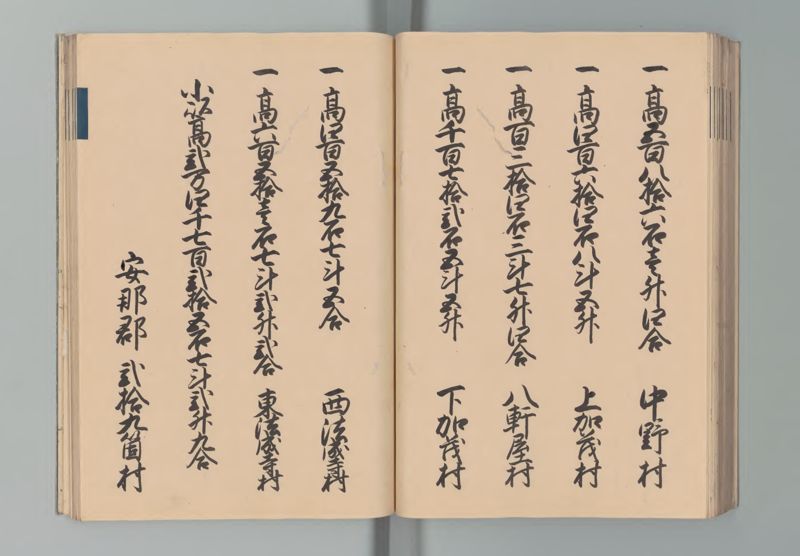 一 高五百八拾六石壱升四合 中野村
一 高四百六拾四石八斗五升 上加茂村
一 高百二拾四石二斗七升四合 八軒屋村
一 高千百七拾弐石五斗五升 下加茂村
一 高四百五拾九石七斗五合 西法成寺村
一 高六百五拾壱石七斗弐升弐合 東法成寺村
小以高弐万四千七百弐拾五石七斗弐升九合
安那郡 弐拾九箇村